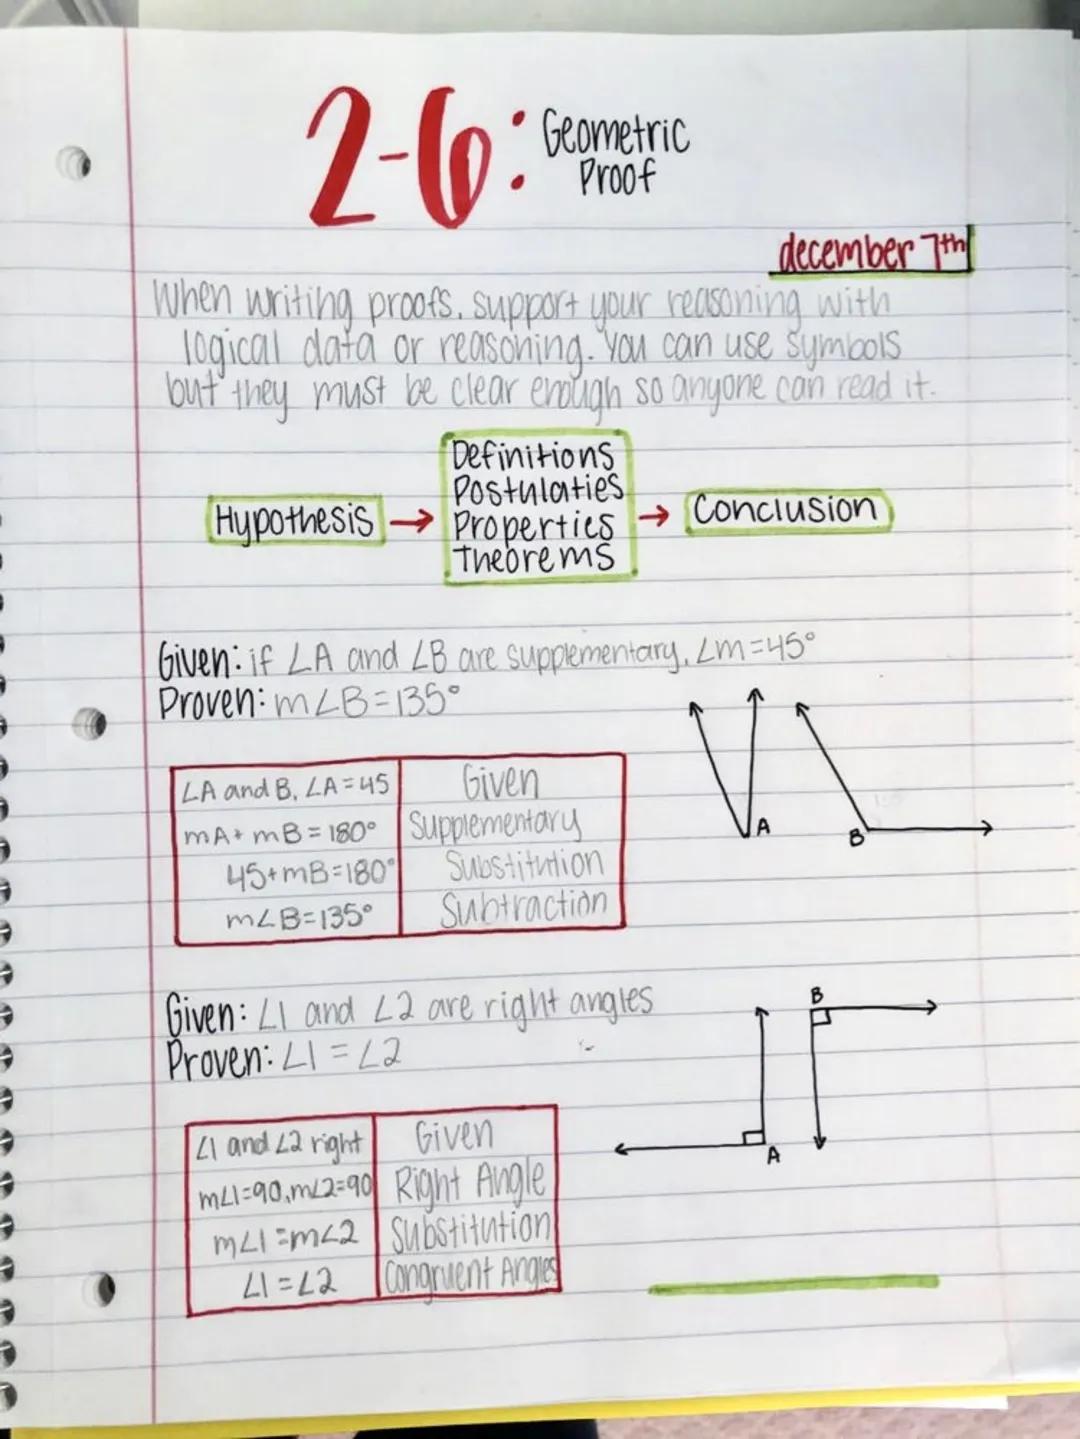 2-6: Geometric
Proof
december 7th
When writing proofs, support your reasoning with
logical data or reasoning. You can use symbols
but they must be clear enough so anyone can read it.
Definitions
Postulaties
Hypothesis → Properties → Conclusion
Theorems
Given: if ∠A and ∠B are supplementary, ∠m=45°
Proven: m∠B=135°
∠A and B, ∠A=45 Given
mA+ mB=180° Supplementary
45+mB=180° Substitution
m∠B=135° Subtraction
A
B
Given: ∠1 and ∠2 are right angles
Proven: ∠1 = ∠2
B
A
∠1 and ∠2 right Given
m∠1=90, m∠2=90 Right Angle
m∠1=m∠2 Substitution
∠1=∠2 Congruent Angles